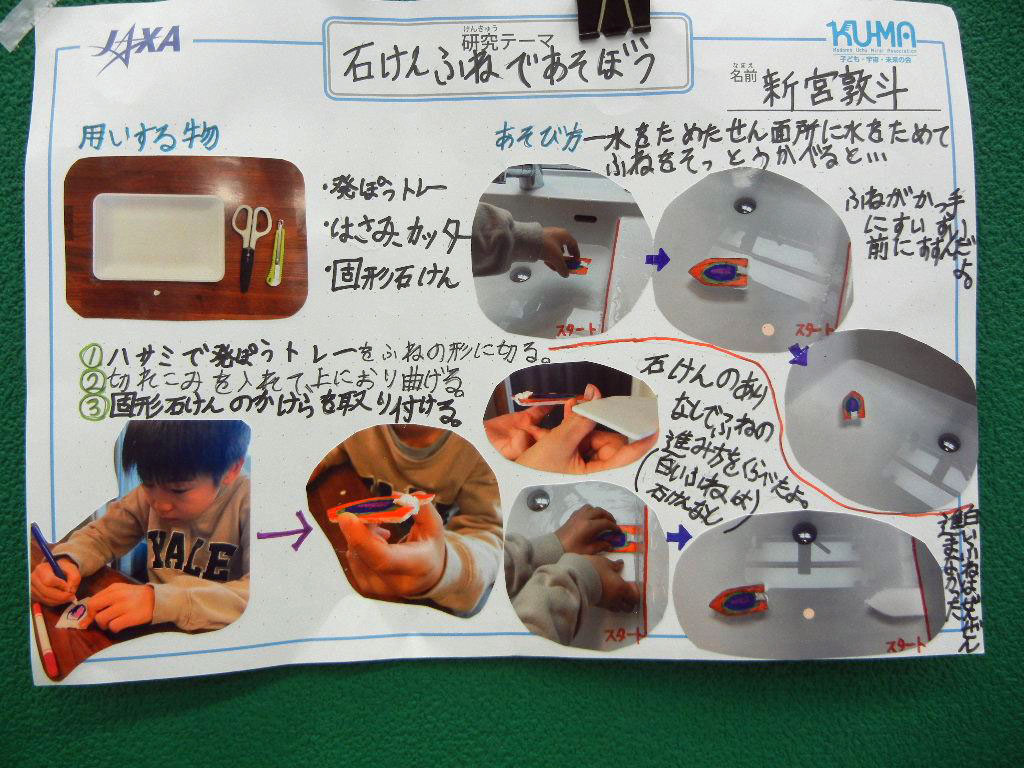 JAXA
けんきゅう
研究テーマ
石けんふねであそぼう
KU-MA
Kodomo Uchu Mirai Association
子ども・宇宙・未来の会
なまえ
名前 新宮敦斗
用いする物
・発ぽうトレー
・はさみ、カッター
・固形石けん
①ハサミで発ぽうトレーをふねの形に切る。
②切れこみを入れて、上におり曲げる。
③固形石けんのかけらを取り付ける。
YALE
あそび方ー水をためたせん面所に水をためて
ふねをそっとうかべると…
スタート
スタート
ふねがかっ手
にすいすい
前にすすんだよ。
石けんのあり
なしでふねの
進み方をくらべたよ。
(白いふねより
石けんなし)
スタート
スタート
白いふねはぜんぜん
進まなかった